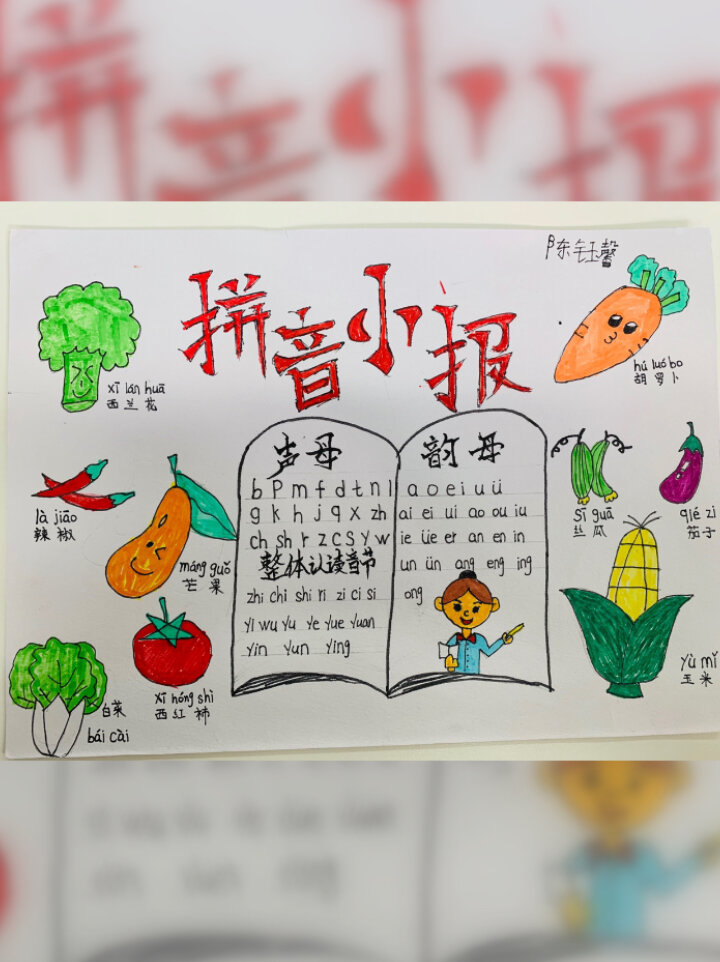 陈钰馨
拼音小报
xī lán huā
西兰花
hú luó bo
胡萝卜
là jiāo
辣椒
máng guǒ
芒果
声母
b p m f d t n l
g k h j q x zh
ch sh r z c s y w
整体认读音节
zhi chi shi ri zi ci si
yi wu yu ye yue yuan
yin yun ying
韵母
a o e i u ü
ai ei ui ao ou iu
ie üe er an en in
un ün ang eng ing
ong
sī guā
丝瓜
qié zi
茄子
白菜
bái cài
xī hóng shì
西红柿
yù mǐ
玉米